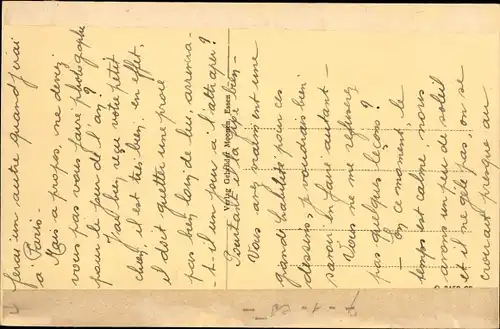 ferai un autre quand j'irai
à Paris.
— Mais à propos, ne deviez
vous pas vous faire photographier
pour le jour de l'an?
J'ai bien reçu votre petit
chien, il est très bien, en effet,
il doit guetter une proie
pas bien loin de lui, arrivera-
-t-il un jour à l'attraper?
Pourtant il a l'air bien —
Vous avez vraiment une
grande habileté pour ces
dessins, je voudrais bien
savoir en faire autant —
Vous ne me refuserez
pas quelques leçons?
— En ce moment, le
temps est calme, nous
avons un peu de soleil
et il ne gèle pas, on se
croirait presque au
Verlag Gebrüder Essen